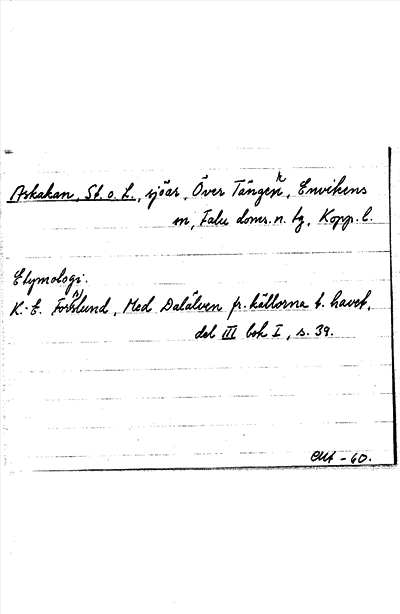 Askakan, St. o. L., sjöar, Över Tängen, Envikens
sn, Falu doms. n. tg, Kopp. l.
Etymologi.
K.-E. Forslund, Med Dalälven fr. källorna t. havet,
del III bok I, s. 39.
-60.